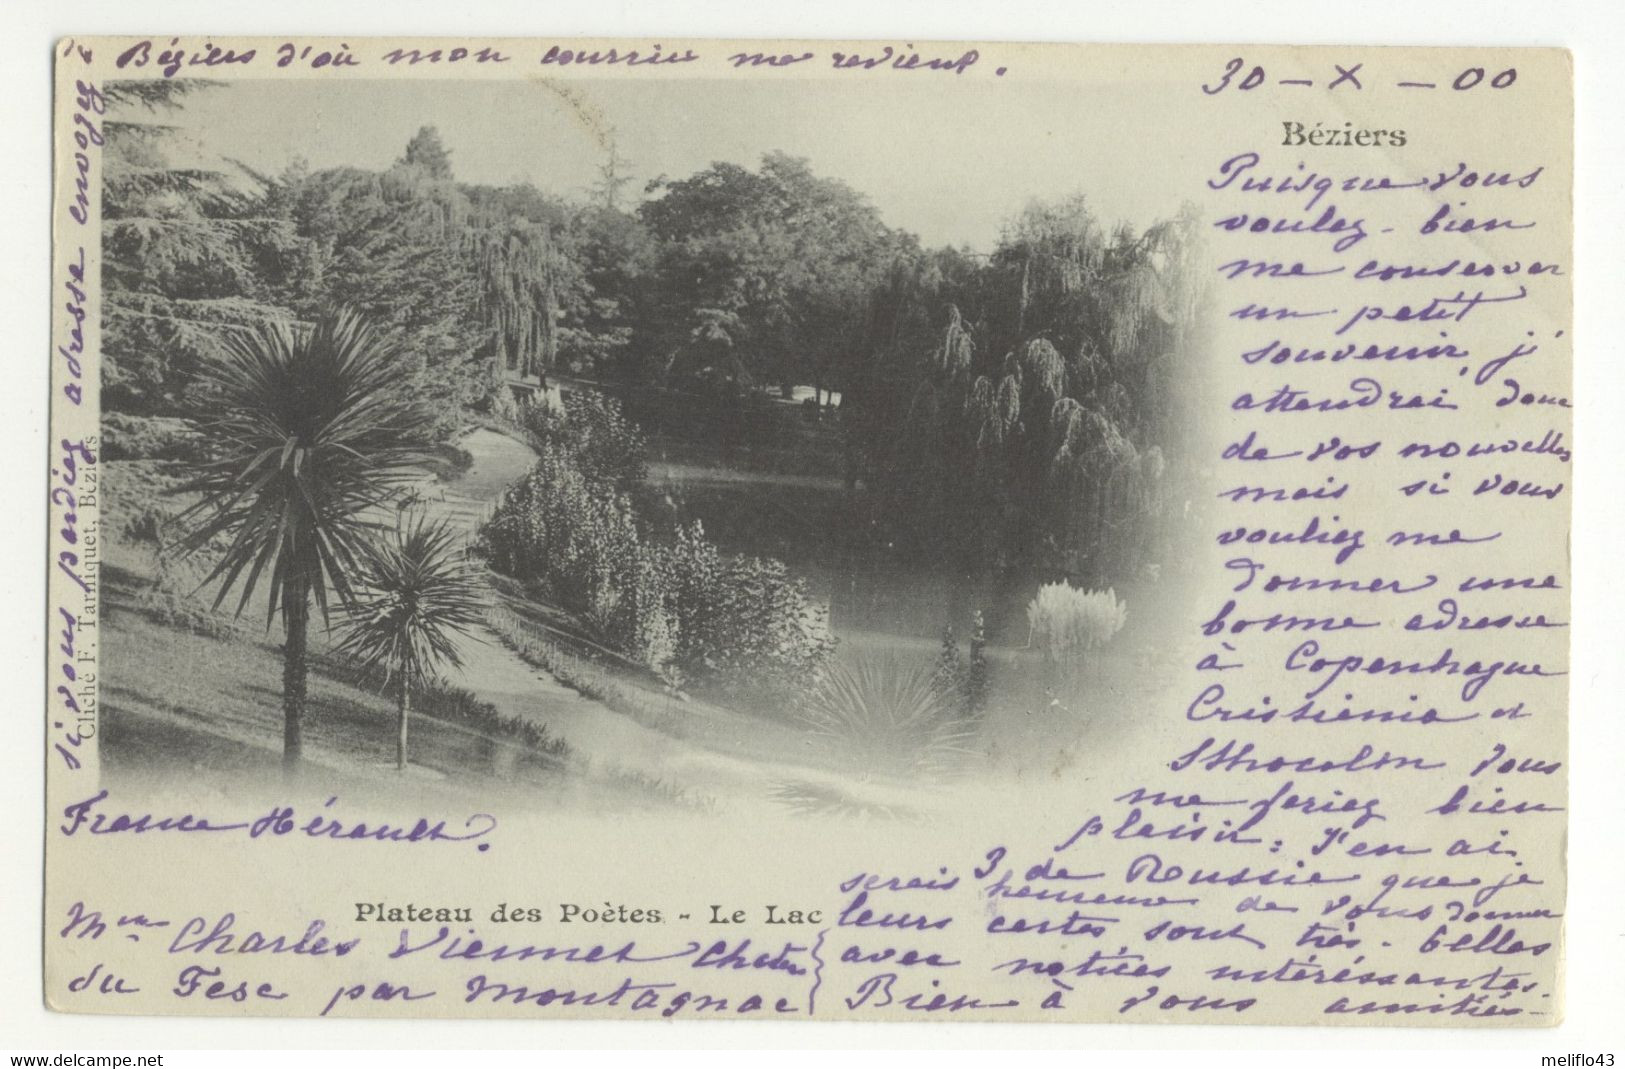 30 - X - 00
Béziers
Puisque vous
voulez-bien
me conserver
un petit
souvenir, j'
attendrai donc
de vos nouvelles
mais si vous
vouliez me
donner une
bonne adresse
à Copenhague
Cristiania et
Sthocolm vous
me feriez bien
plaisir: J'en ai
3 de Russie que je
serais heureuse de vous donner
leurs cartes sont très-belles
avec notices intéressantes.
Bien à vous amitiés-
Mme Charles Viennet
du Fesc par Montagnac
France Hérault.
si vous perdiez adresse envoyez à
Béziers d'où mon courrier me revient.
Cliché F. Tarniquet, Béziers
Plateau des Poètes - Le Lac
meliflo43